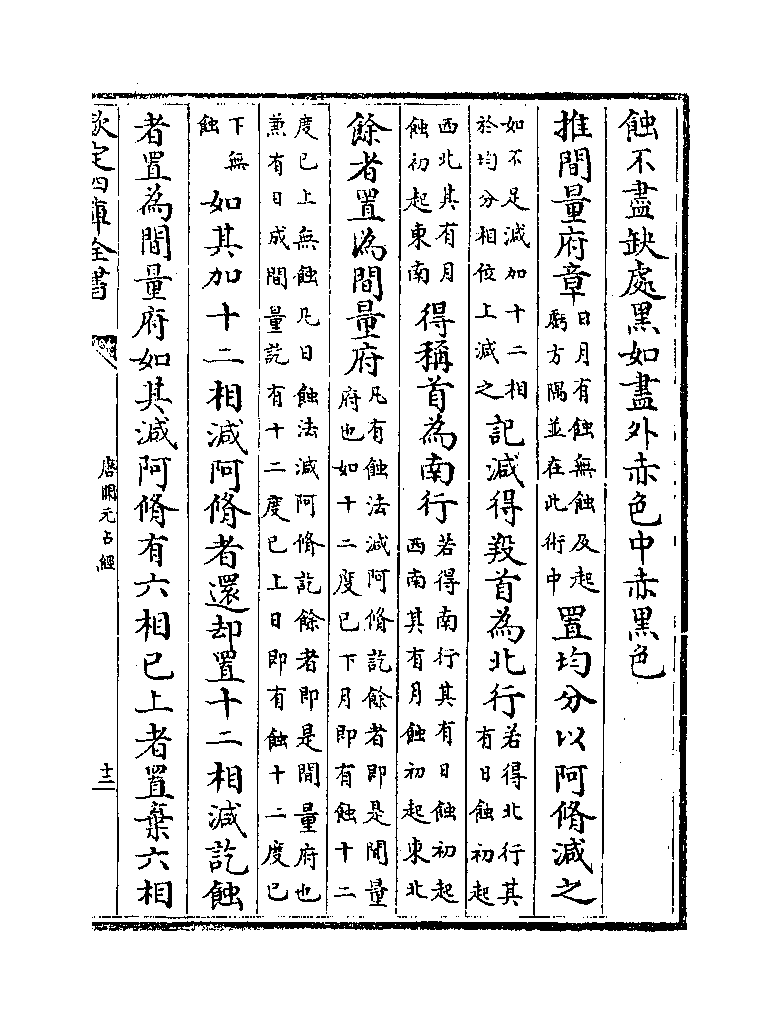 蝕不盡缺處黑如盡外赤色中赤黑色
推間量府章
日月有蝕無蝕及起
虧方隅並在此術中
置均分以阿脩減之
如不足減加十二相
於均分相位上減之
記減得羖首為北行
若得北行其
有日蝕初起
西北其有月
蝕初起東南
得稱首為南行
若得南行其有日蝕初起
西南其有月蝕初起東北
餘者置為間量府
凡有蝕法減阿脩訖餘者即是間量
府也如十二度已下月即有蝕十二
度已上無蝕凡日蝕法減阿脩訖餘者即是間量府也
兼有日成間量訖有十二度已上日即有蝕十二度已
下無
蝕
如其加十二相減阿脩者還却置十二相減訖蝕
者置為間量府如其減阿脩有六相已上者置棄六相
欽定四庫全書
唐開元占經
十二